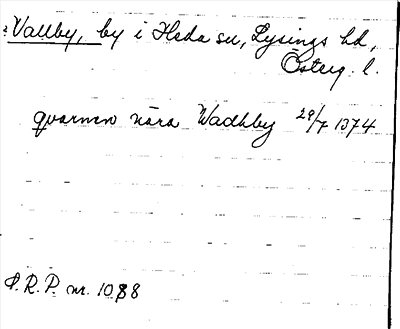 Vallby, by i Heda sn, Lysings hd,
Österg. l.
qvarnen nära Wadhby 29/7 1374
S.R.P. nr. 1088